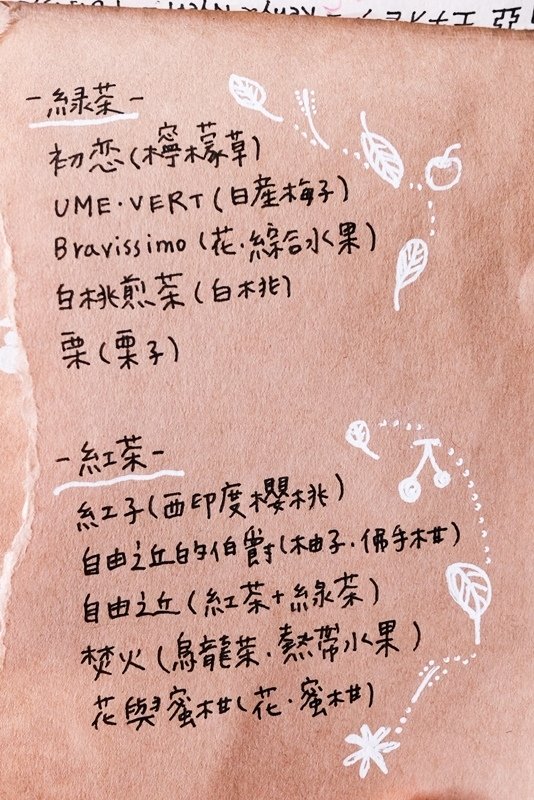 -綠茶-
初恋(檸檬草)
UME·VERT(日產梅子)
Bravissimo(花·綜合水果)
白桃煎茶(白桃)
栗(栗子)
-紅茶-
紅子(西印度櫻桃)
自由之丘的伯爵(柚子·佛手柑)
自由之丘(紅茶+綠茶)
焚火(烏龍茶·熱帶水果)
花與蜜柑(花·蜜柑)